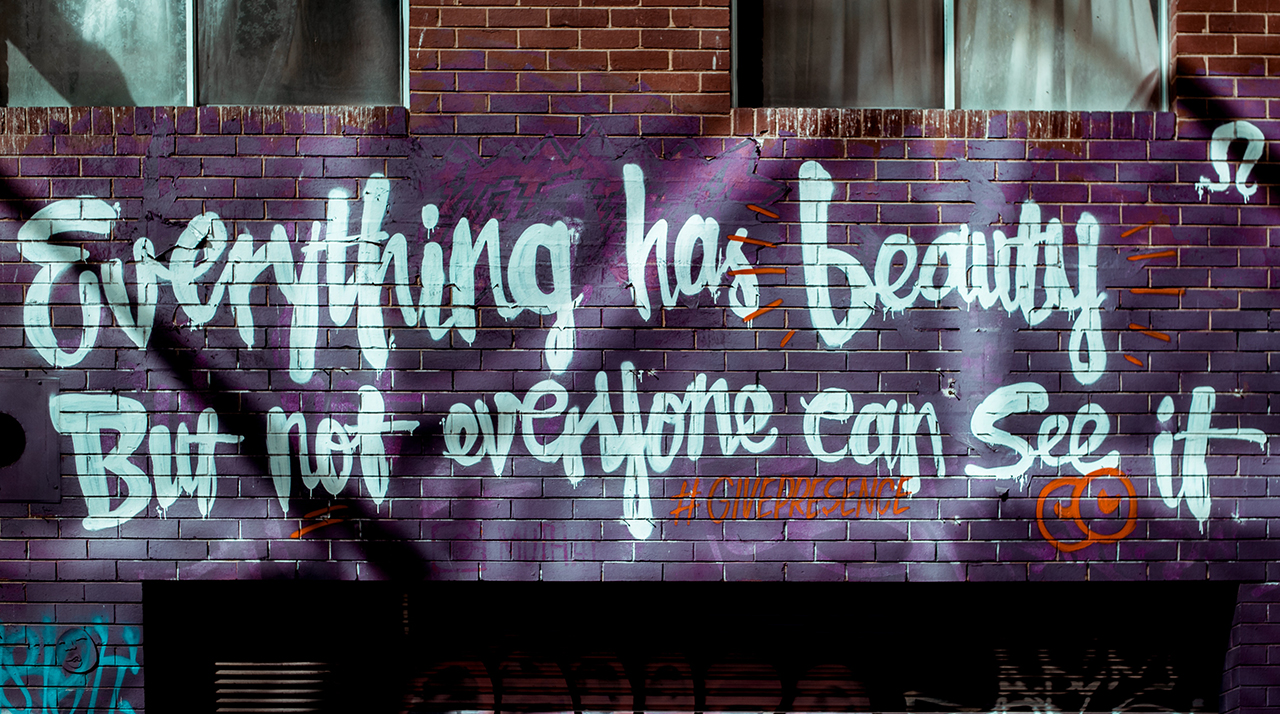 Everything has beauty
But not everyone can See it
#GIVEPRESENCE